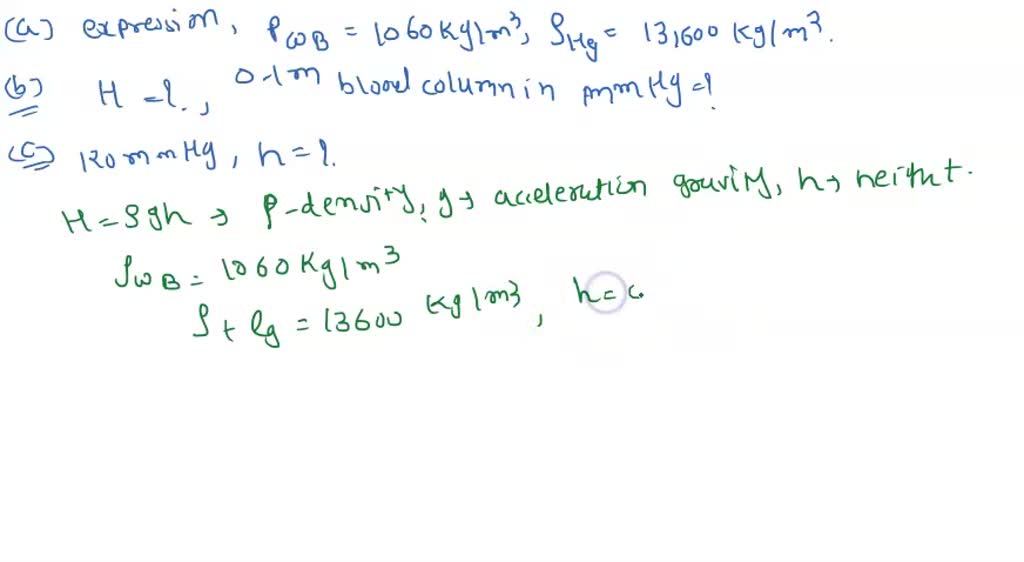 (a) expression, ρωB = 1060 Kg/m³, ρHg = 13,600 kg/m³.
(b) H = ?., 0.1m blood column in mmHg = ?
(c) 120mmHg, h = ?.
H = ρgh → ρ-density, g → acceleration gravity, h → height.
ρωB = 1060 Kg/m³
ρHg = 13600 kg/m³, h = 0.